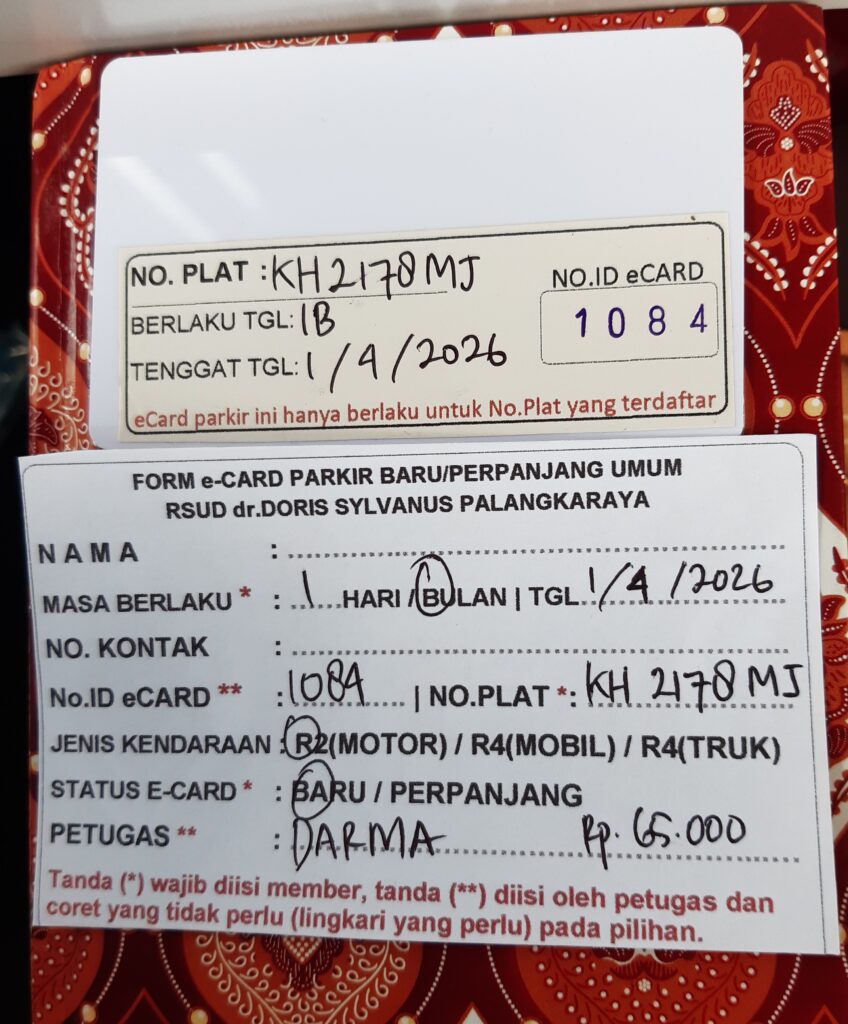 NO. PLAT : KH 2178 MJ
NO.ID eCARD
1084
BERLAKU TGL: 1B
TENGGAT TGL: 1/4/2026
eCard parkir ini hanya berlaku untuk No.Plat yang terdaftar
FORM e-CARD PARKIR BARU/PERPANJANG UMUM
RSUD dr.DORIS SYLVANUS PALANGKARAYA
N A M A :
MASA BERLAKU * : 1 HARI / BULAN | TGL 1/4/2026
NO. KONTAK :
No.ID eCARD ** : 1084 | NO.PLAT *: KH 2178 MJ
JENIS KENDARAAN : R2(MOTOR) / R4(MOBIL) / R4(TRUK)
STATUS E-CARD * : BARU / PERPANJANG
PETUGAS ** : DARMA Rp. 65.000
Tanda (*) wajib diisi member, tanda (**) diisi oleh petugas dan
coret yang tidak perlu (lingkari yang perlu) pada pilihan.